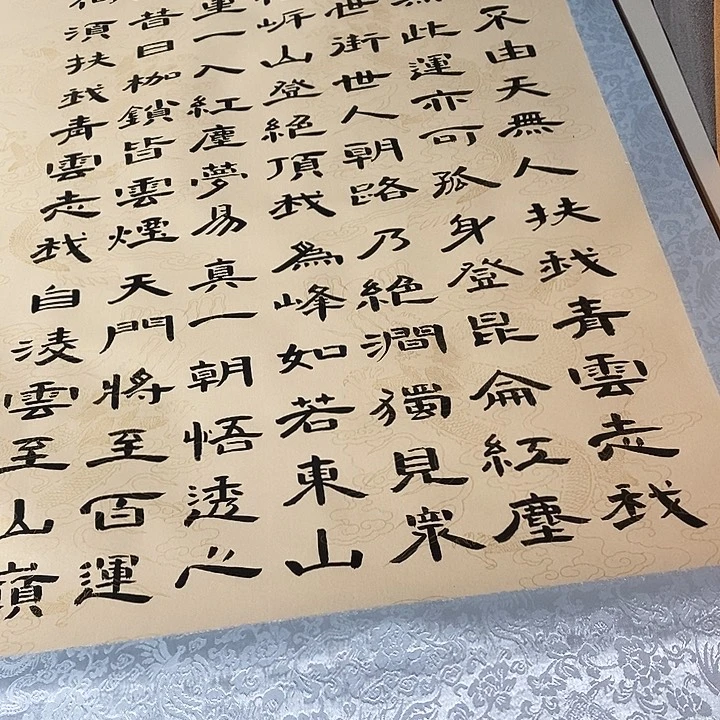 不由天無人扶我青雲志我
此運亦可孤身登昆侖紅塵
世街世人朝路乃絕澗獨見眾
山登絕頂我為峰如若東山
一入紅塵夢易真一朝悟透心
昔日枷鎖皆雲煙天門將至百運
須扶我青雲志我自淩雲至山嶺